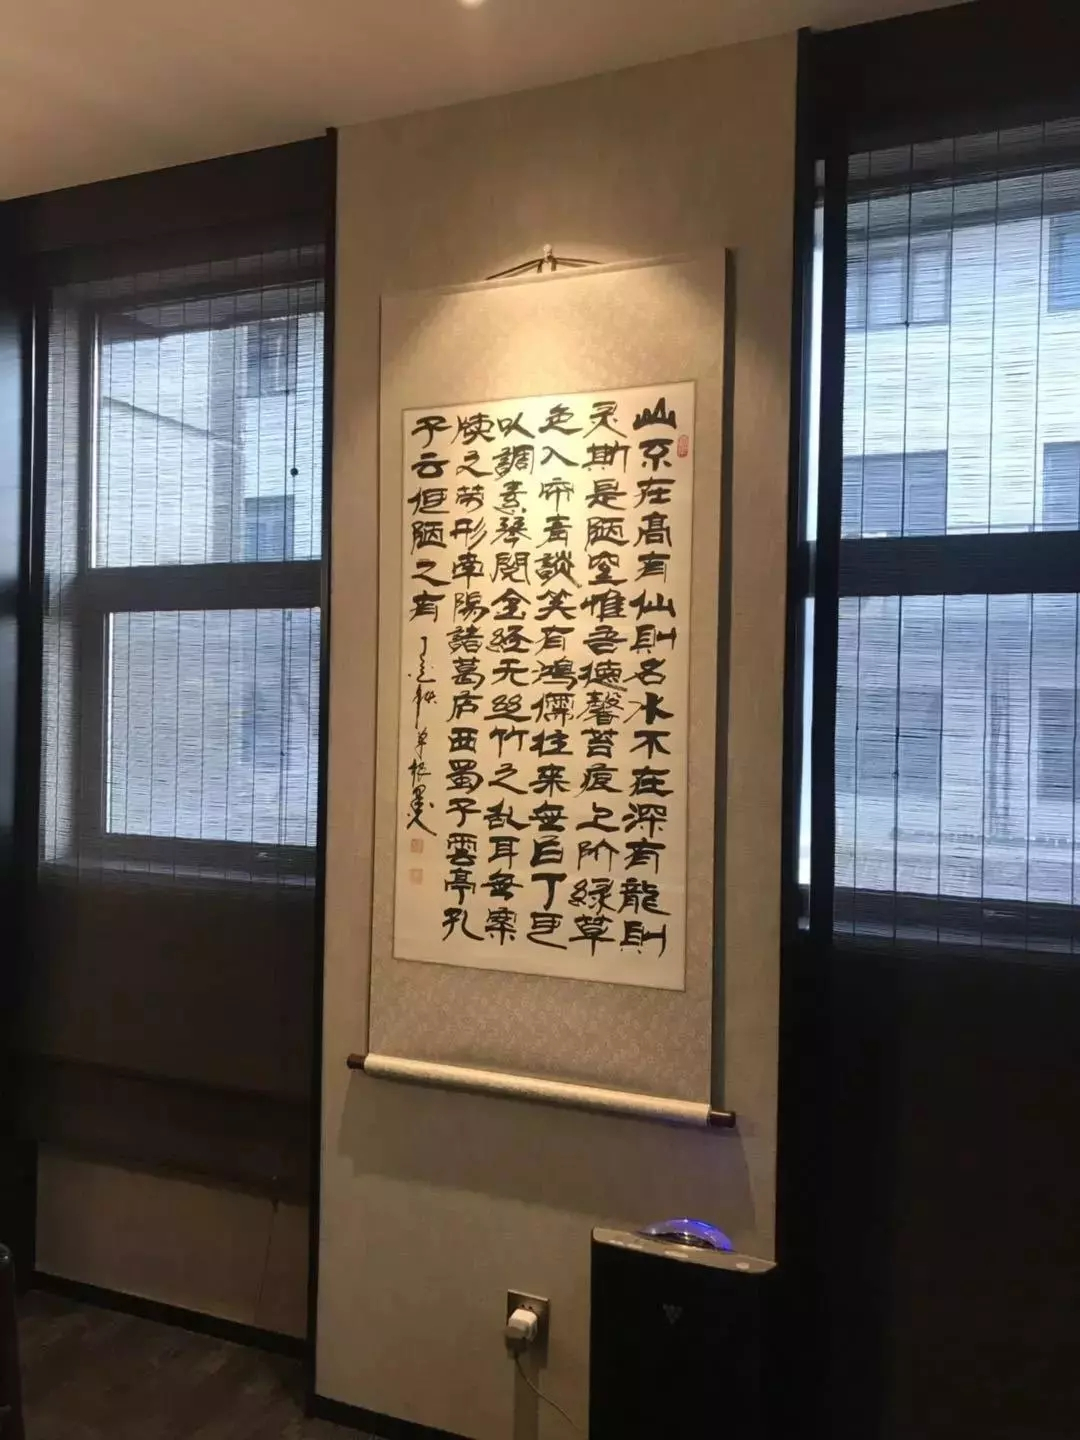 山不在高有仙則名水不在深有龍則
灵斯是陋室惟吾德馨苔痕上阶緑草
色入帘青談笑有鴻儒往来無白丁可
以調素琴閱金經无丝竹之乱耳無案
牍之劳形南陽諸葛庐西蜀子雲亭孔
子云何陋之有